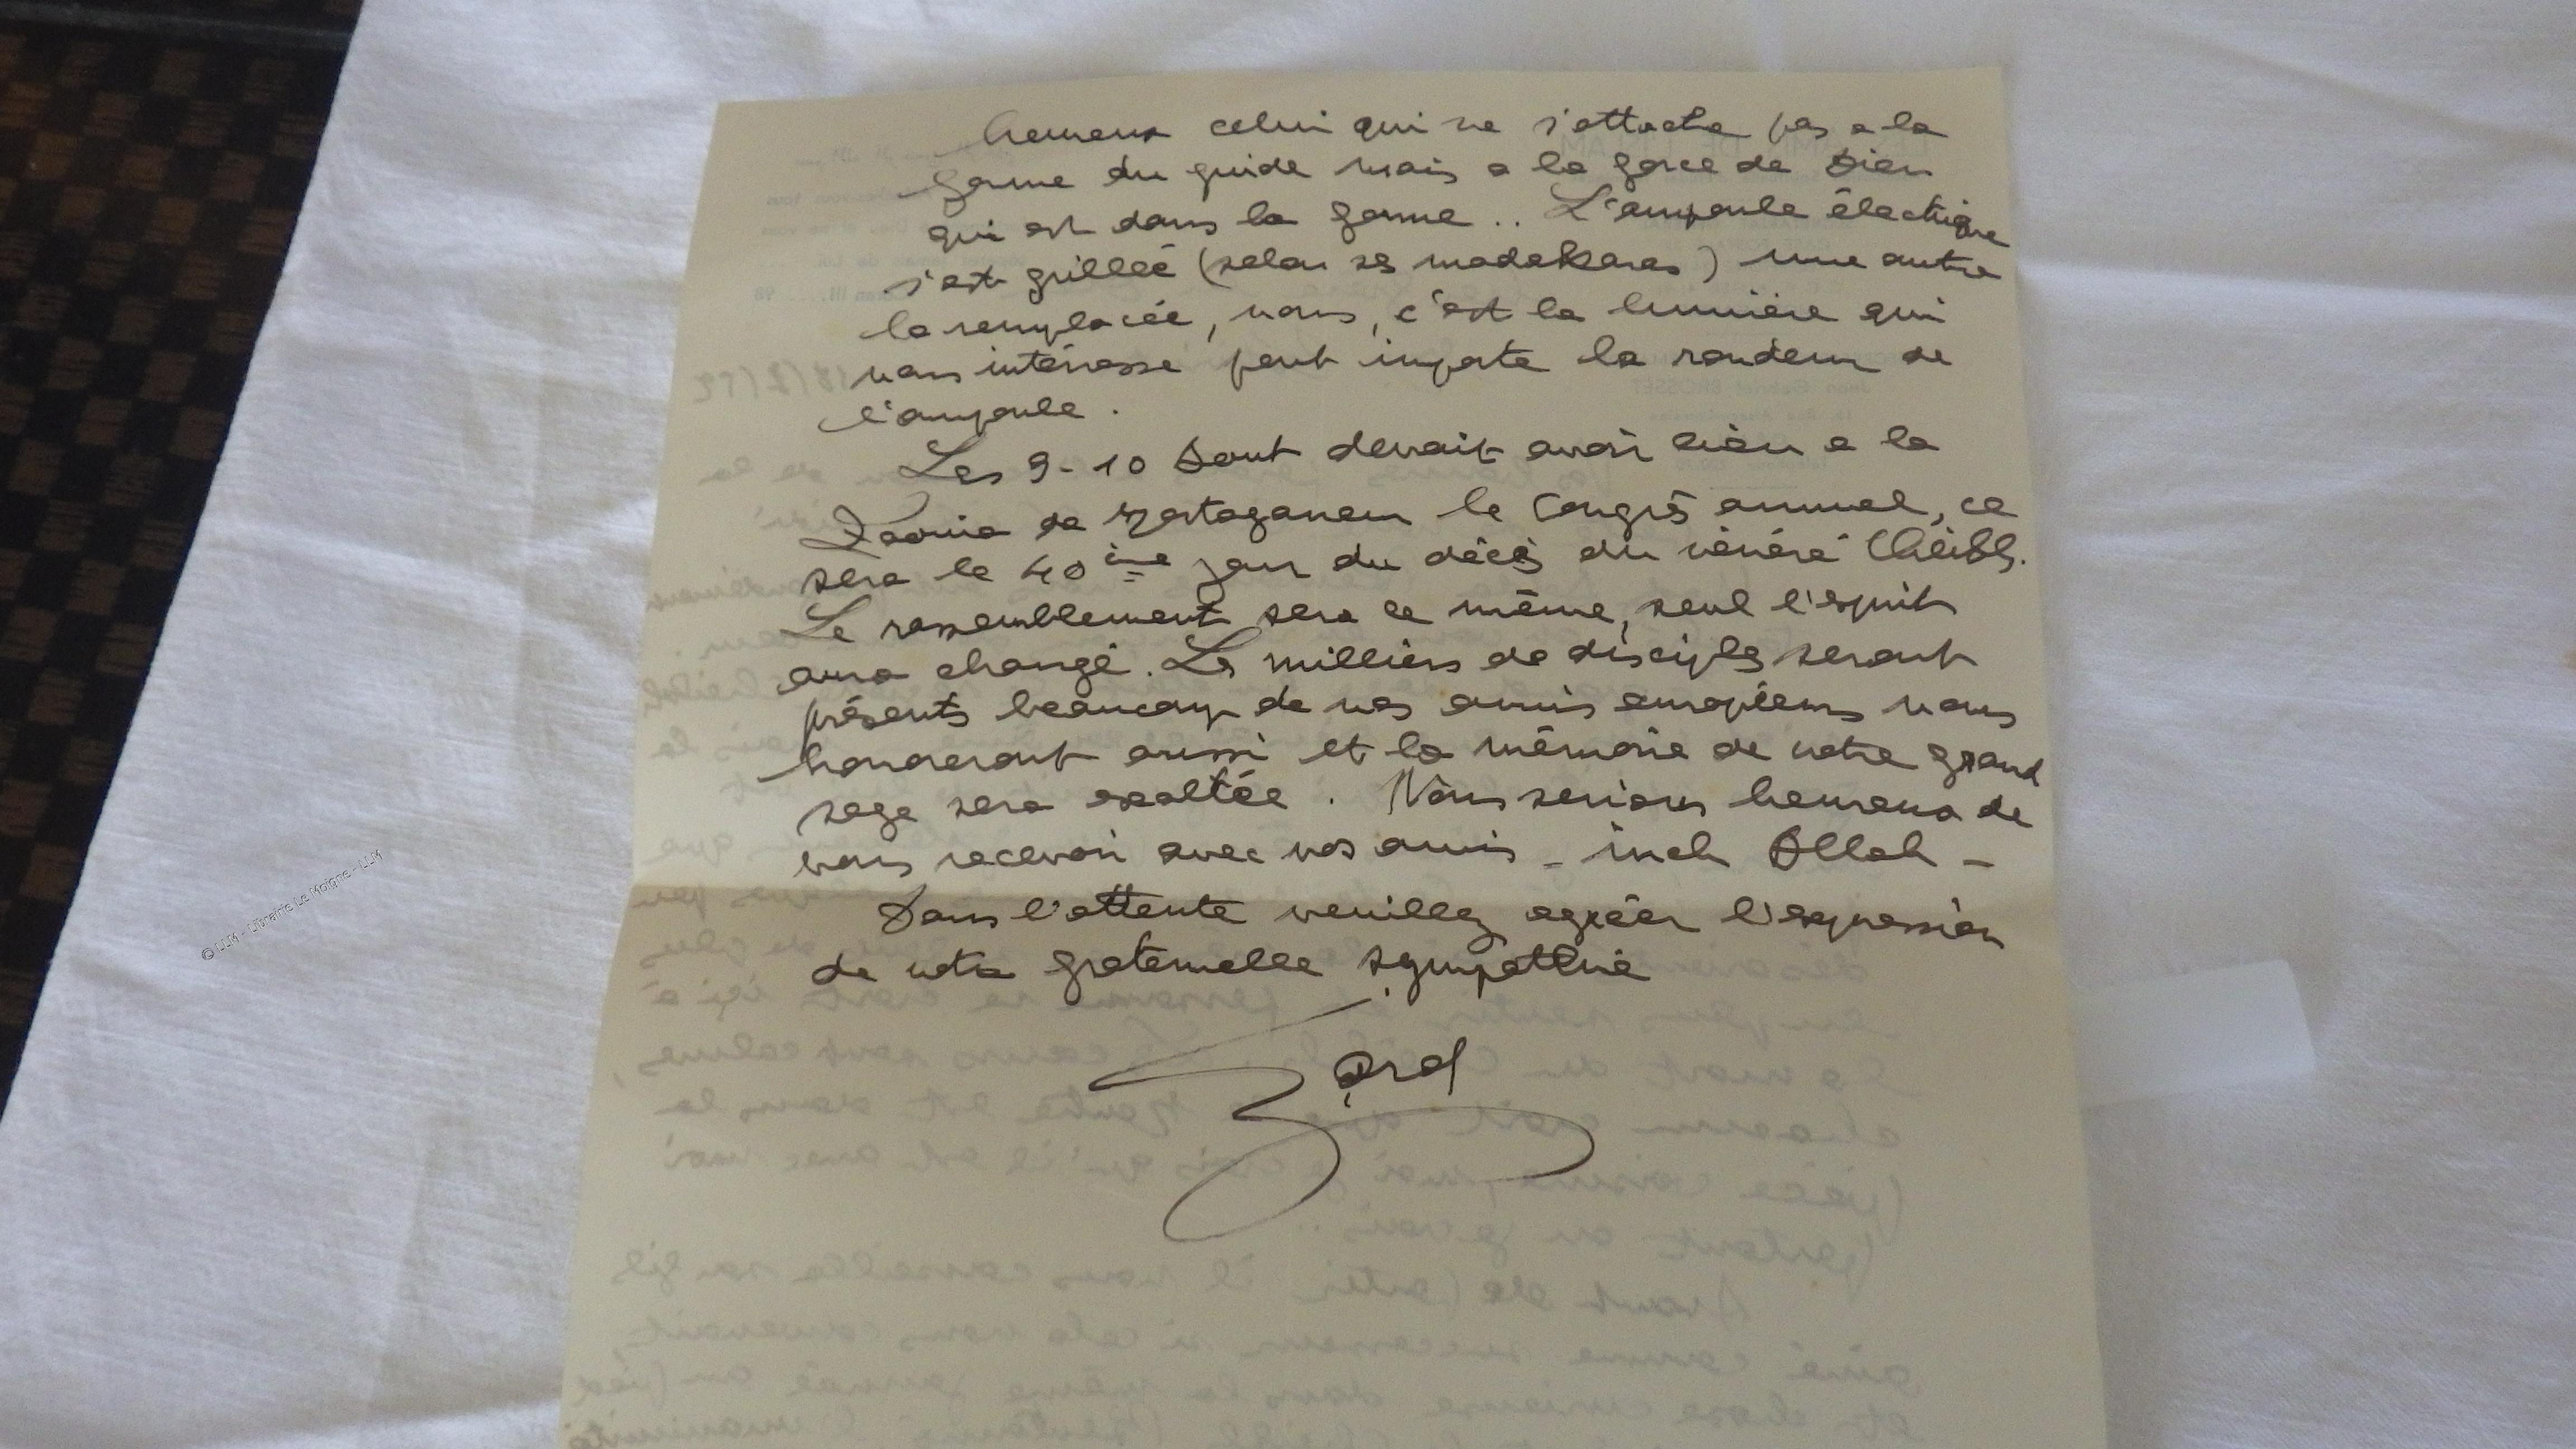 heureux celui qui ne s'attache pas a la
forme du guide mais a la force de Dieu
qui est dans la forme .. L'ampoule électrique
s'est grillée (selon ses                ) une autre
la remplacée, nous, c'est la lumière qui
nous intéresse peut importe la rondeur de
l'ampoule .
Les 9-10 Aout devait avoir lieu a la
Zaouia de Mostaganem le Congrès annuel, ce
sera le 40ème jour du décès du vénéré Cheikh.
Le rassemblement sera le même, seul l'esprit
aura changé. Les milliers de disciples seront
présents beaucoup de nos amis européens nous
honoreront aussi et la mémoire de notre grand
sage sera exaltée . Nous serions heureux de
vous recevoir avec vos amis - inch Allah -
Dans l'attente veuillez agréer l'expression
de notre fraternelle sympathie
© LLM - Librairie Le Moigne - LLM